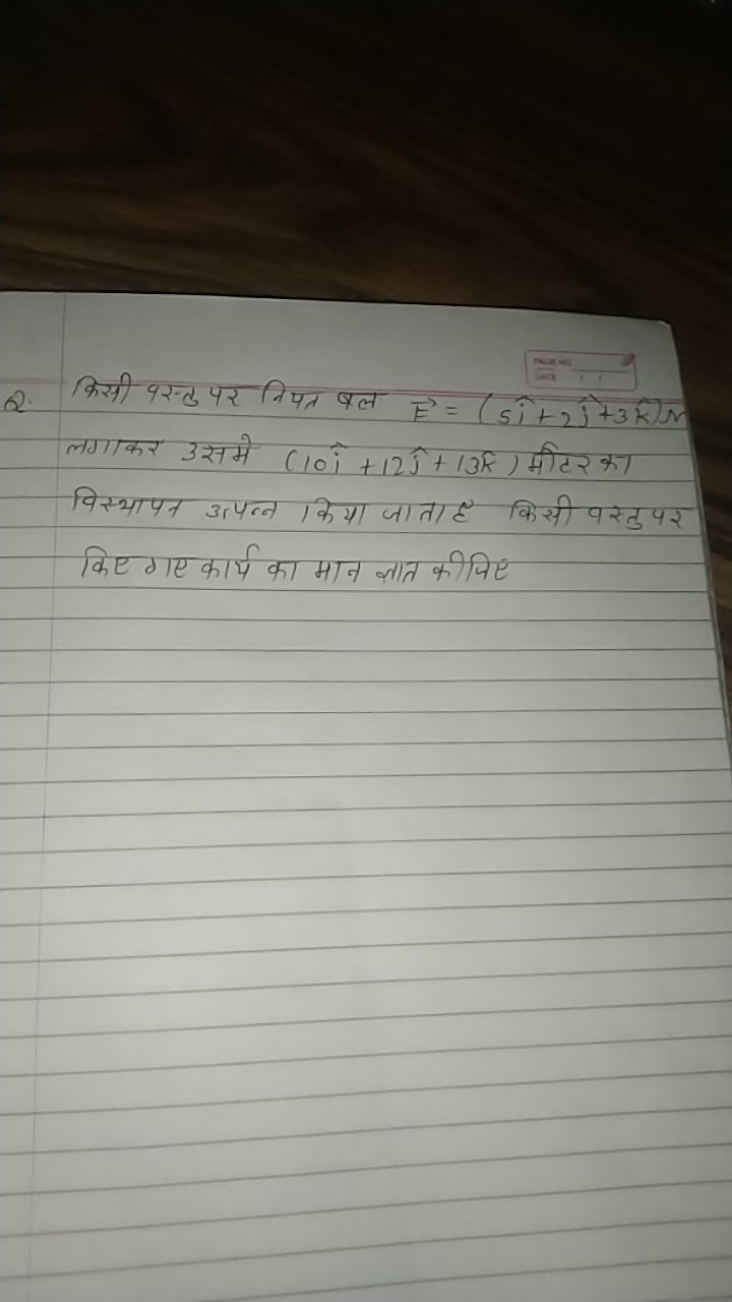 PAGE NO.
DATE / /
Q. किसी वस्तु पर नियत बल F⃗ = (5î + 2ĵ + 3k̂)N
लगाकर उसमे (10î + 12ĵ + 13k̂) मीटर का
विस्थापन उत्पन्न किया जाता है किसी वस्तु पर
किए गए कार्य का मान ज्ञात कीजिए